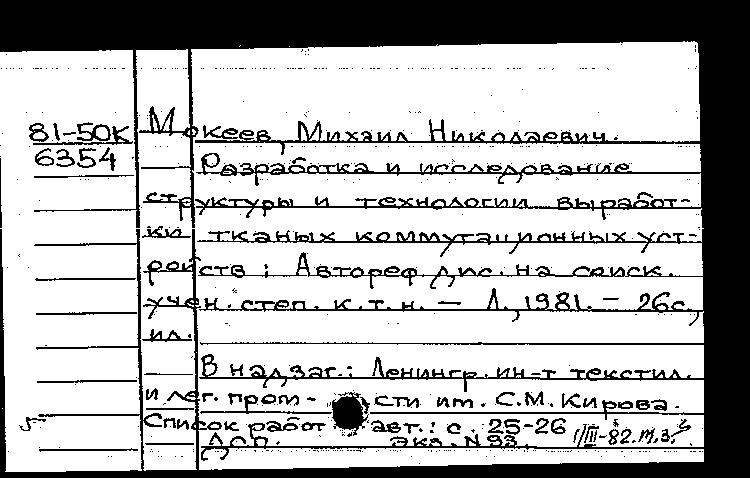 81-50К Мокеев, Михаил Николаевич.
6354 Разработка и исследование
структуры и технологии выработ-
ки тканых коммутационных уст-
ройств: Автореф. дис. на соиск.
учен. степ. к.т.н. — Л., 1981. — 26с.,
ил.
В надзаг.: Ленингр. ин-т текстил.
и лег. пром- сти им. С.М. Кирова.
Список работ авт.: с. 25-26
ДСП. экз. N 93. 1/III-82.